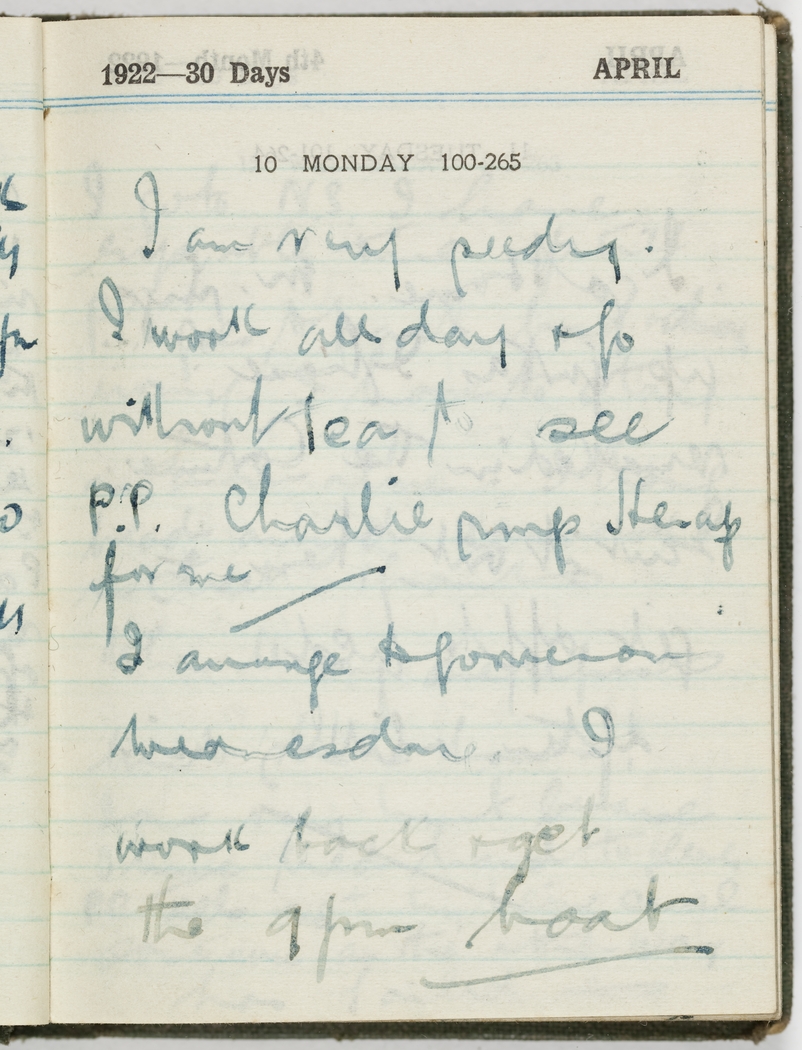 1922—30 Days APRIL
10 MONDAY 100-265
I am very seedy.
I work all day & go
without tea to see
P.P. Charlie
for me
I arrange to
Wednesday. I
work back & get
the 9 pm boat